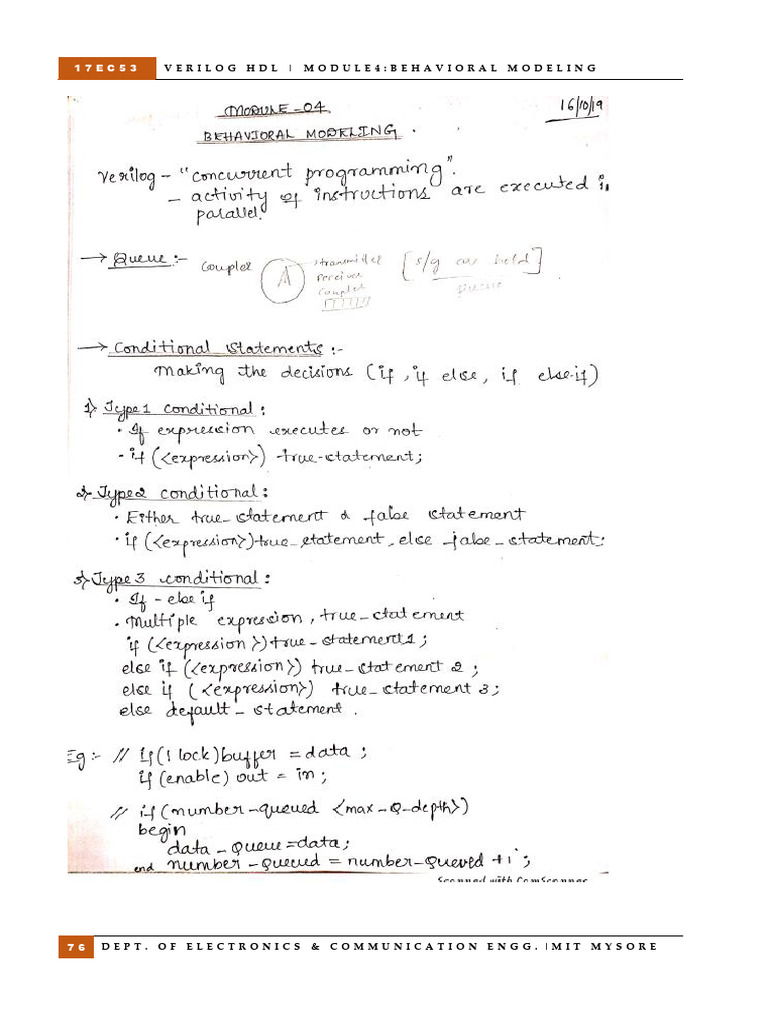 17EC53 VERILOG HDL | MODULE4:BEHAVIORAL MODELING
MODULE-04 16/10/19
BEHAVIORAL MODELING.
Verilog - "concurrent programming".
- activity of instructions are executed in
parallel.
→ Queue :- Coupler A transmitter [s/g are held]
receiver queue
coupler
→ Conditional statements :-
making the decisions (if, if else, if else-if)
1) Type 1 conditional:
• If expression executes or not
• if (<expression>) true-statement;
2) Type 2 conditional:
• Either true_statement & false statement
• if (<expression>) true_statement, else false_statement;
3) Type 3 conditional:
• If - else if
• Multiple expression, true_statement
if (<expression>) true_statement1;
else if (<expression>) true_statement 2;
else if (<expression>) true_statement 3;
else default_statement.
Eg:- // if (! lock) buffer = data;
if (enable) out = in;
// if (number_queued <max_Q_depth>)
begin
data_queue = data;
end number_queued = number_queued + 1;
Scanned with CamScanner
76 DEPT. OF ELECTRONICS & COMMUNICATION ENGG. |MIT MYSORE